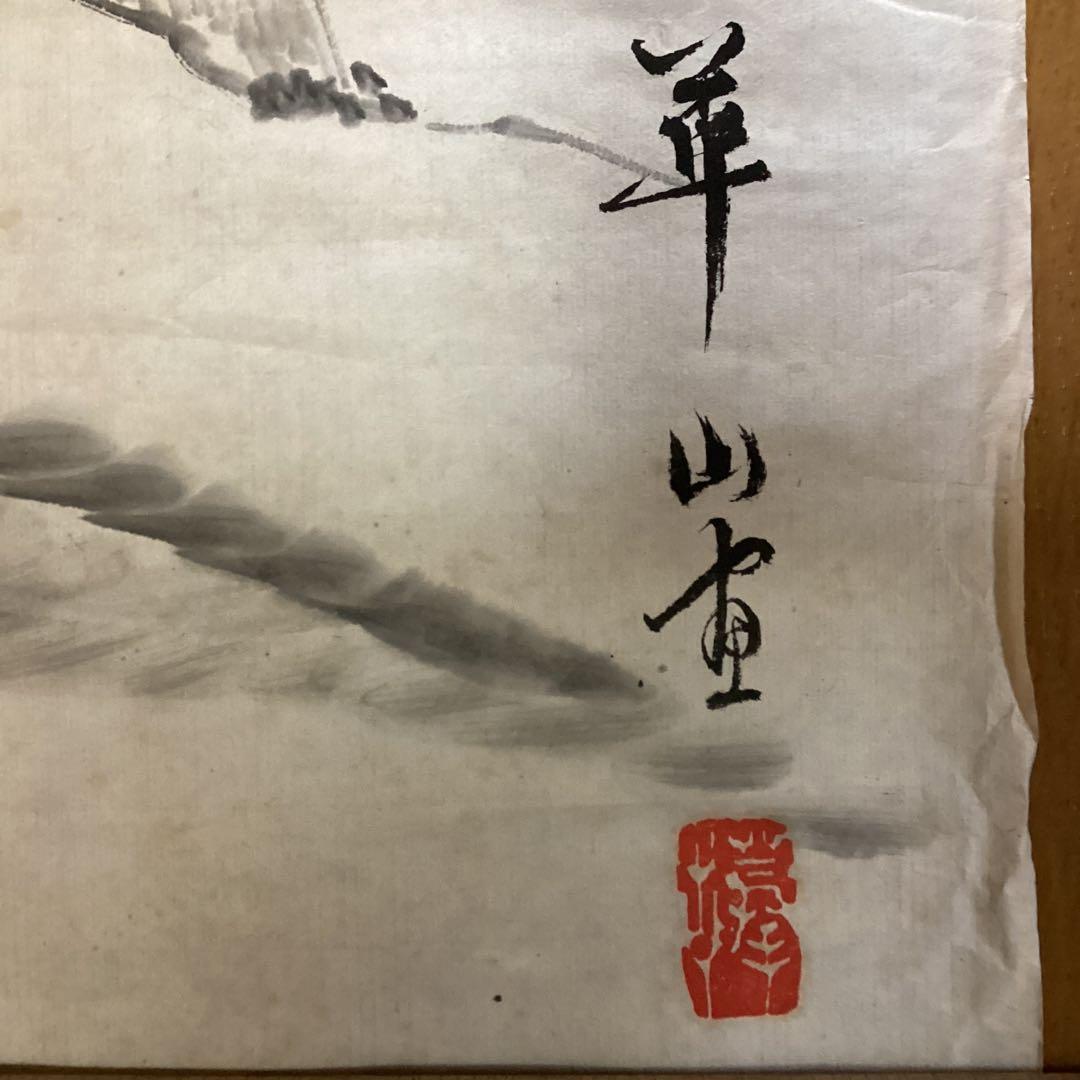 華山画